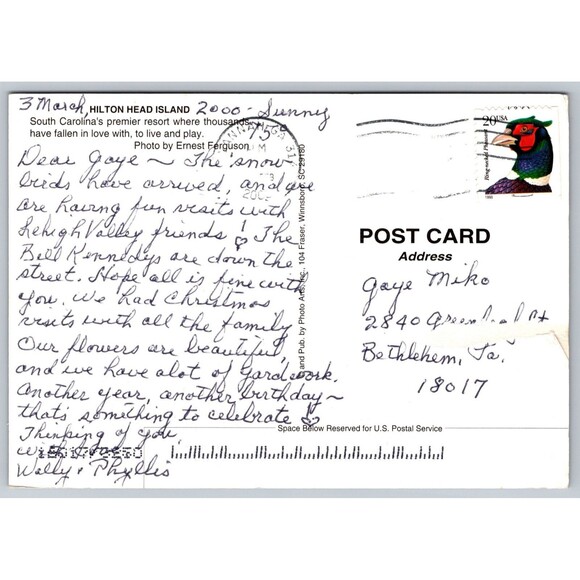 3 March, HILTON HEAD ISLAND 2000 - Sunny
South Carolina's premier resort where thousands
have fallen in love with, to live and play. 75°
Photo by Ernest Ferguson
Dear Gaye ~ The snow
birds have arrived, and we
are having fun visits with
Lehigh Valley friends! The
Bill Kennedys are down the
street. Hope all is fine with
you. We had Christmas
visits with all the family
Our flowers are beautiful,
and we have alot of yardwork.
Another year, another birthday ~
that's something to celebrate!
Thinking of you,
with
Wally & Phyllis
and Pub. by Photo Arts, Inc., 104 Fraser, Winnsboro, SC 29180
SAVANNAH, GA
20 USA
Ring-necked Pheasant
POST CARD
Address
Gaye Miko
2840
Bethlehem, Pa.
18017
Space Below Reserved for U.S. Postal Service